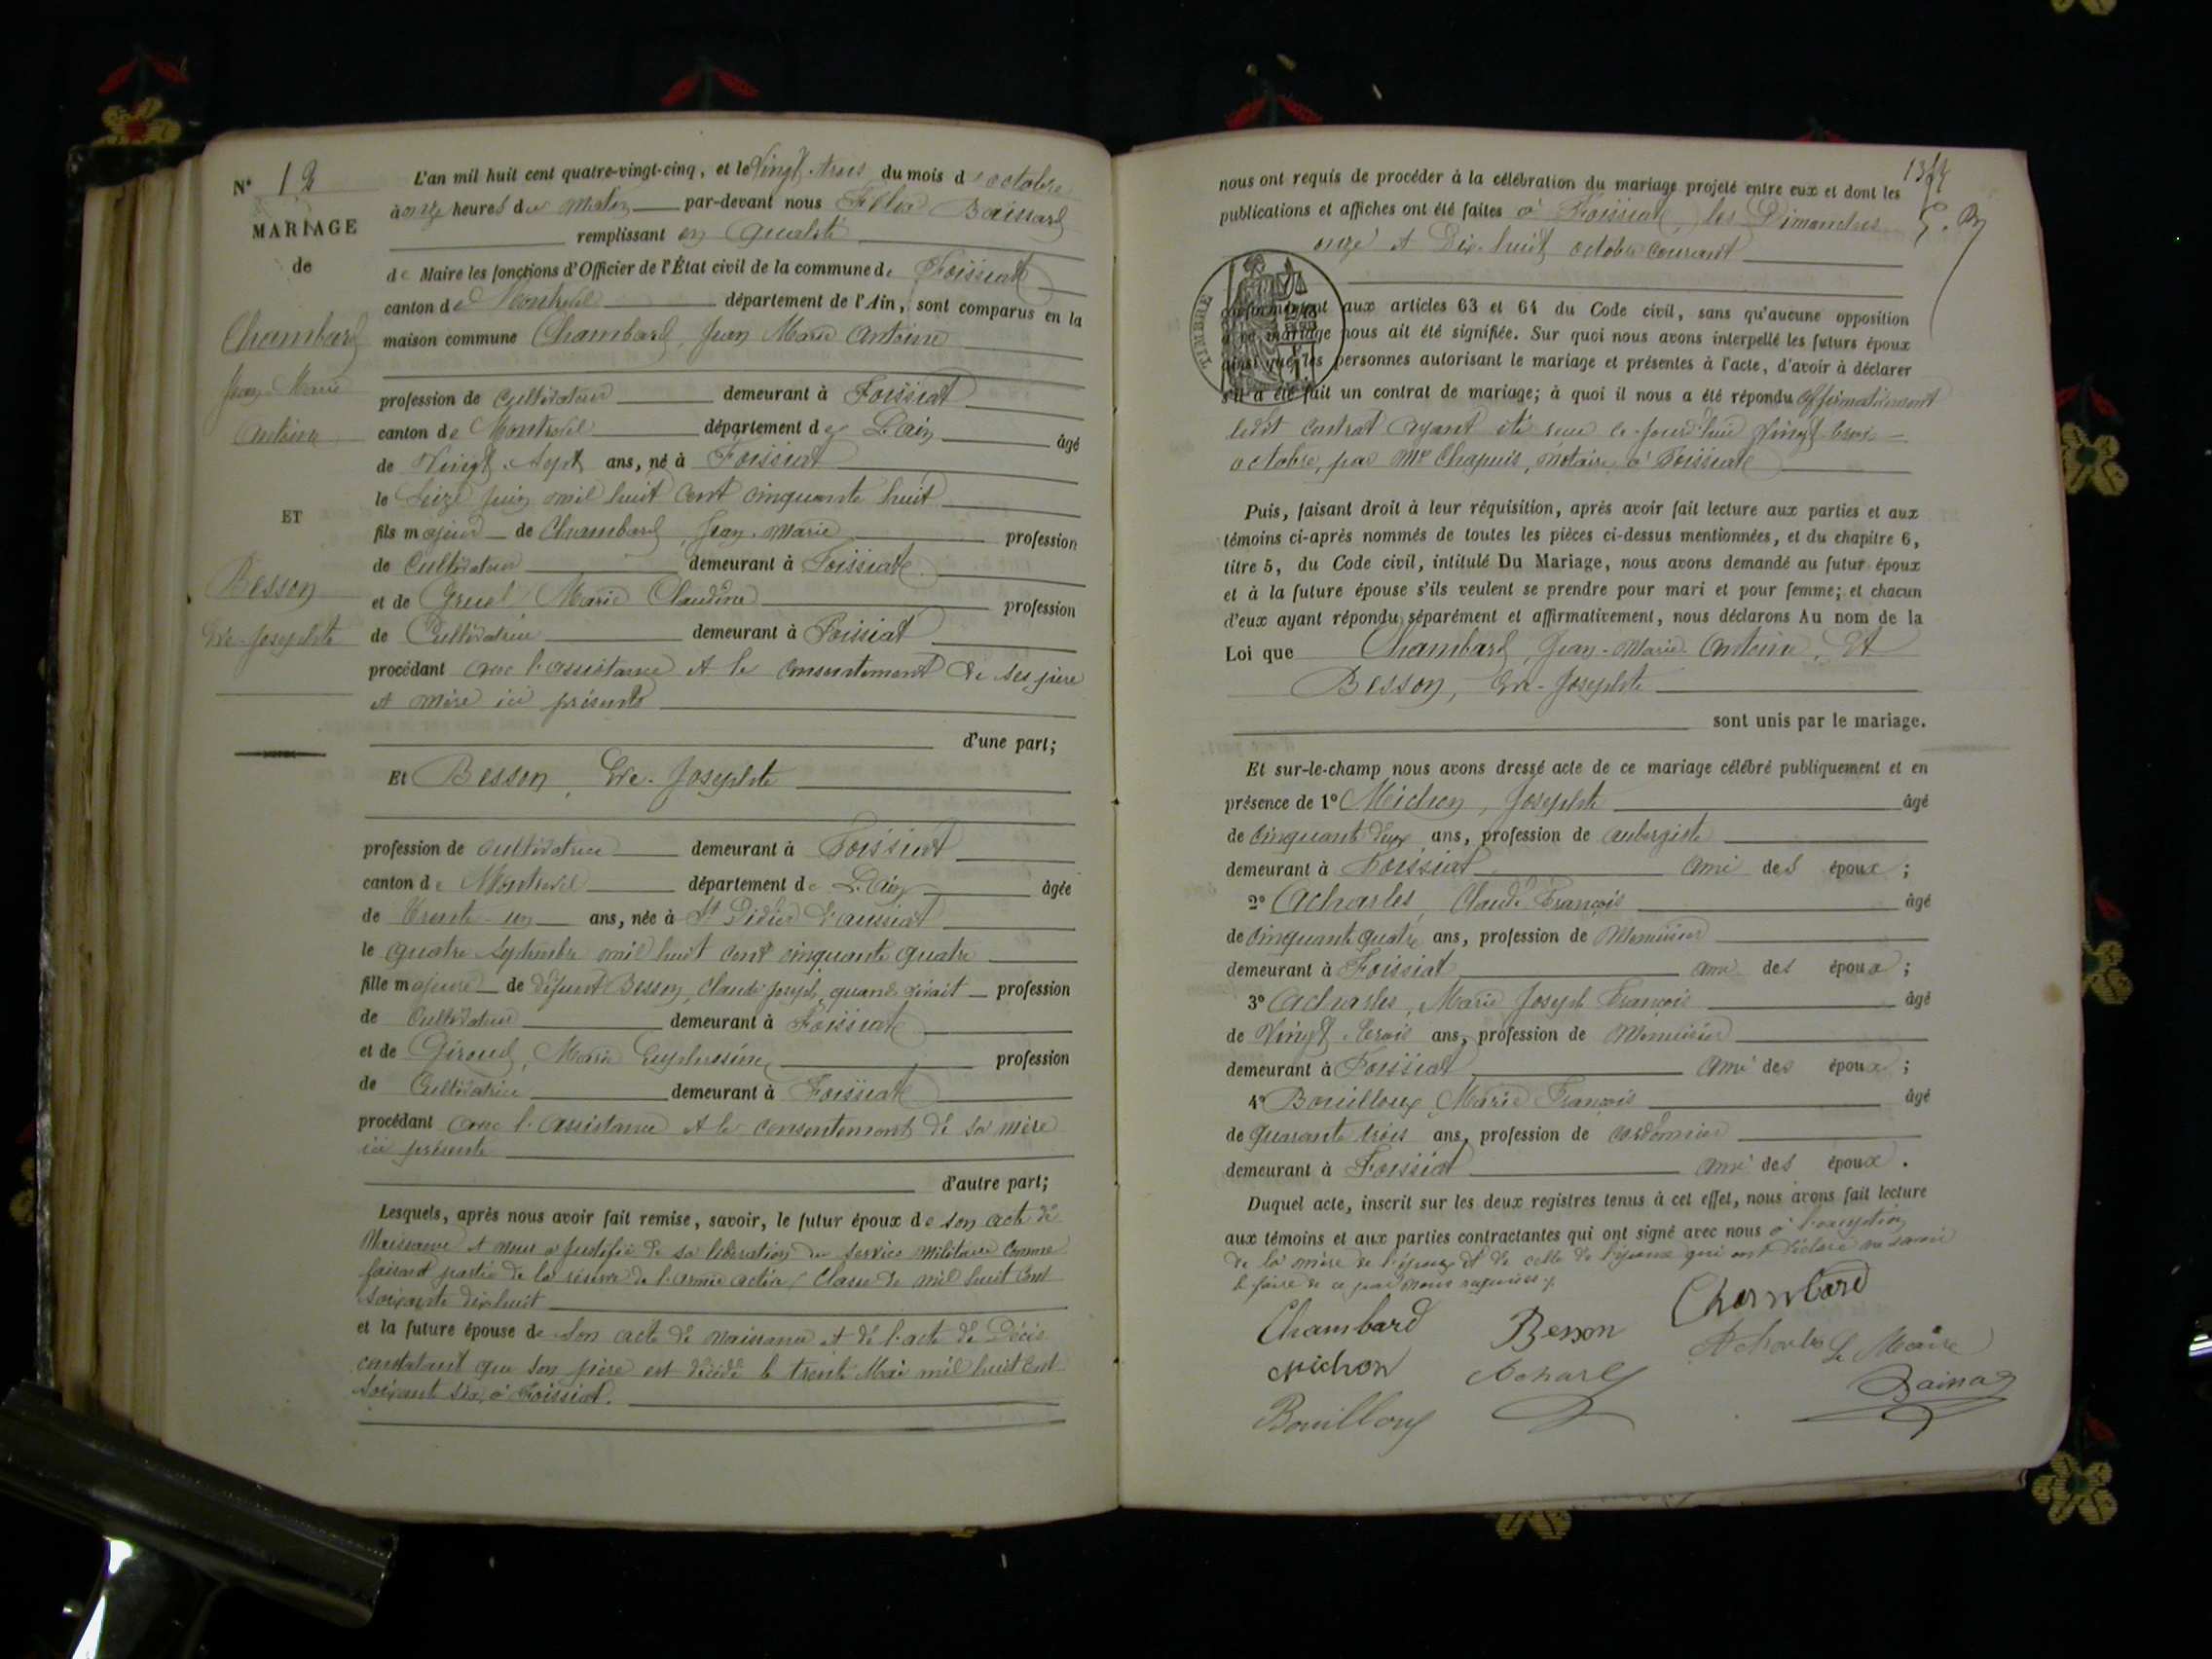 N° 12
MARIAGE
de
Chambard
Jean Marie
Antoine
ET
Besson
Eve-Josephte
L'an mil huit cent quatre-vingt-cinq, et le Vingt trois du mois d'octobre
à onze heures du Matin par-devant nous Félix
remplissant en qualité
de Maire les fonctions d'Officier de l'État civil de la commune de Foissiat
canton de Montrevel département de l'Ain, sont comparus en la
maison commune Chambard, Jean Marie Antoine
profession de Cultivateur demeurant à Foissiat
canton de Montrevel département de L'Ain âgé
de Vingt-Sept ans, né à Foissiat
le Seize juin mil huit cent cinquante huit
fils majeur de Chambard, Jean-Marie profession
de Cultivateur demeurant à Foissiat
et de Gruel, Marie Claudine profession
de Cultivatrice demeurant à Foissiat
procédant avec l'assistance et le consentement de ses père
et mère ici présents
d'une part;
Et Besson, Eve-Josephte
profession de cultivatrice demeurant à Foissiat
canton de Montrevel département de L'Ain âgée
de Trente-un ans, née à St Didier d'aussiat
le quatre Septembre mil huit cent cinquante quatre
fille majeure de défunt Besson, Claude Joseph, quand vivait profession
de Cultivateur demeurant à Foissiat
et de Giroud, Marie Euphrosine profession
de Cultivatrice demeurant à Foissiat
procédant avec l'assistance et le consentement de sa mère
ici présente
d'autre part;
Lesquels, après nous avoir fait remise, savoir, le futur époux de son acte de
Naissance et nous a justifié de sa libération du service militaire comme
faisant partie de la réserve de l'armée active, Classe de mil huit cent
soixante dix-huit
et la future épouse de son acte de naissance et de l'acte de Décès
constatant que son père est décédé le trente Mai mil huit cent
soixante six, à Foissiat.
nous ont requis de procéder à la célébration du mariage projeté entre eux et dont les
publications et affiches ont été faites à Foissiat, les Dimanches
onze et Dix-huit octobre courant
TIMBRE
conformément aux articles 63 et 64 du Code civil, sans qu'aucune opposition
à ce mariage nous ait été signifiée. Sur quoi nous avons interpellé les futurs époux
ainsi que les personnes autorisant le mariage et présentes à l'acte, d'avoir à déclarer
s'il a été fait un contrat de mariage; à quoi il nous a été répondu affirmativement
ledit contrat ayant été reçu ce jourd'hui Vingt trois
octobre, par Me Chapuis, notaire à Foissiat
Puis, faisant droit à leur réquisition, après avoir fait lecture aux parties et aux
témoins ci-après nommés de toutes les pièces ci-dessus mentionnées, et du chapitre 6,
titre 5, du Code civil, intitulé Du Mariage, nous avons demandé au futur époux
et à la future épouse s'ils veulent se prendre pour mari et pour femme; et chacun
d'eux ayant répondu séparément et affirmativement, nous déclarons Au nom de la
Loi que Chambard, Jean-Marie-Antoine, Et
Besson, Eve-Josephte
sont unis par le mariage.
Et sur-le-champ nous avons dressé acte de ce mariage célébré publiquement et en
présence de 1° Michon, Josephte âgé
de cinquante deux ans, profession de aubergiste
demeurant à Foissiat ami des époux;
2° Acharles, Claude François âgé
de cinquante quatre ans, profession de Menuisier
demeurant à Foissiat ami des époux;
3° Acharles, Marie Joseph François âgé
de Vingt-trois ans, profession de Menuisier
demeurant à Foissiat ami des époux;
4° Bouilloux, Marie François âgé
de quarante trois ans, profession de cordonnier
demeurant à Foissiat ami des époux.
Duquel acte, inscrit sur les deux registres tenus à cet effet, nous avons fait lecture
aux témoins et aux parties contractantes qui ont signé avec nous à l'exception
de la mère de l'époux et de celle de l'épouse qui ont déclaré ne savoir
le faire de ce par nous requises
Chambard Besson Chambard
Michon Acharles Acharles Le Maire
Bouilloux